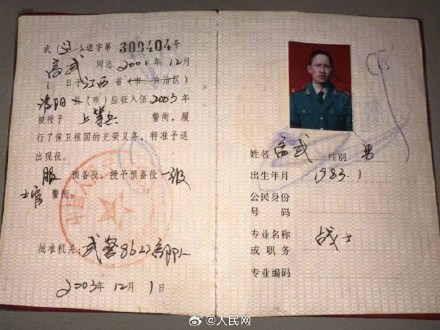 武 退字第 309404 号
高武 同志 2001 年 12 月
1 日于 江西 省(市、自治区)
县(市)应征入伍 2003 年
被授予 上等兵 警衔,履行
了保卫祖国的光荣义务,特准予退
出现役。
服 预备役,授予预备役 一级
士官 警衔。
批准机关: 武警 部队
2003 年 12 月 1 日
姓名 高武 性别 男
出生年月 1983.1
公民身份
号码
专业名称
或职务 战士
专业编码
@人民网